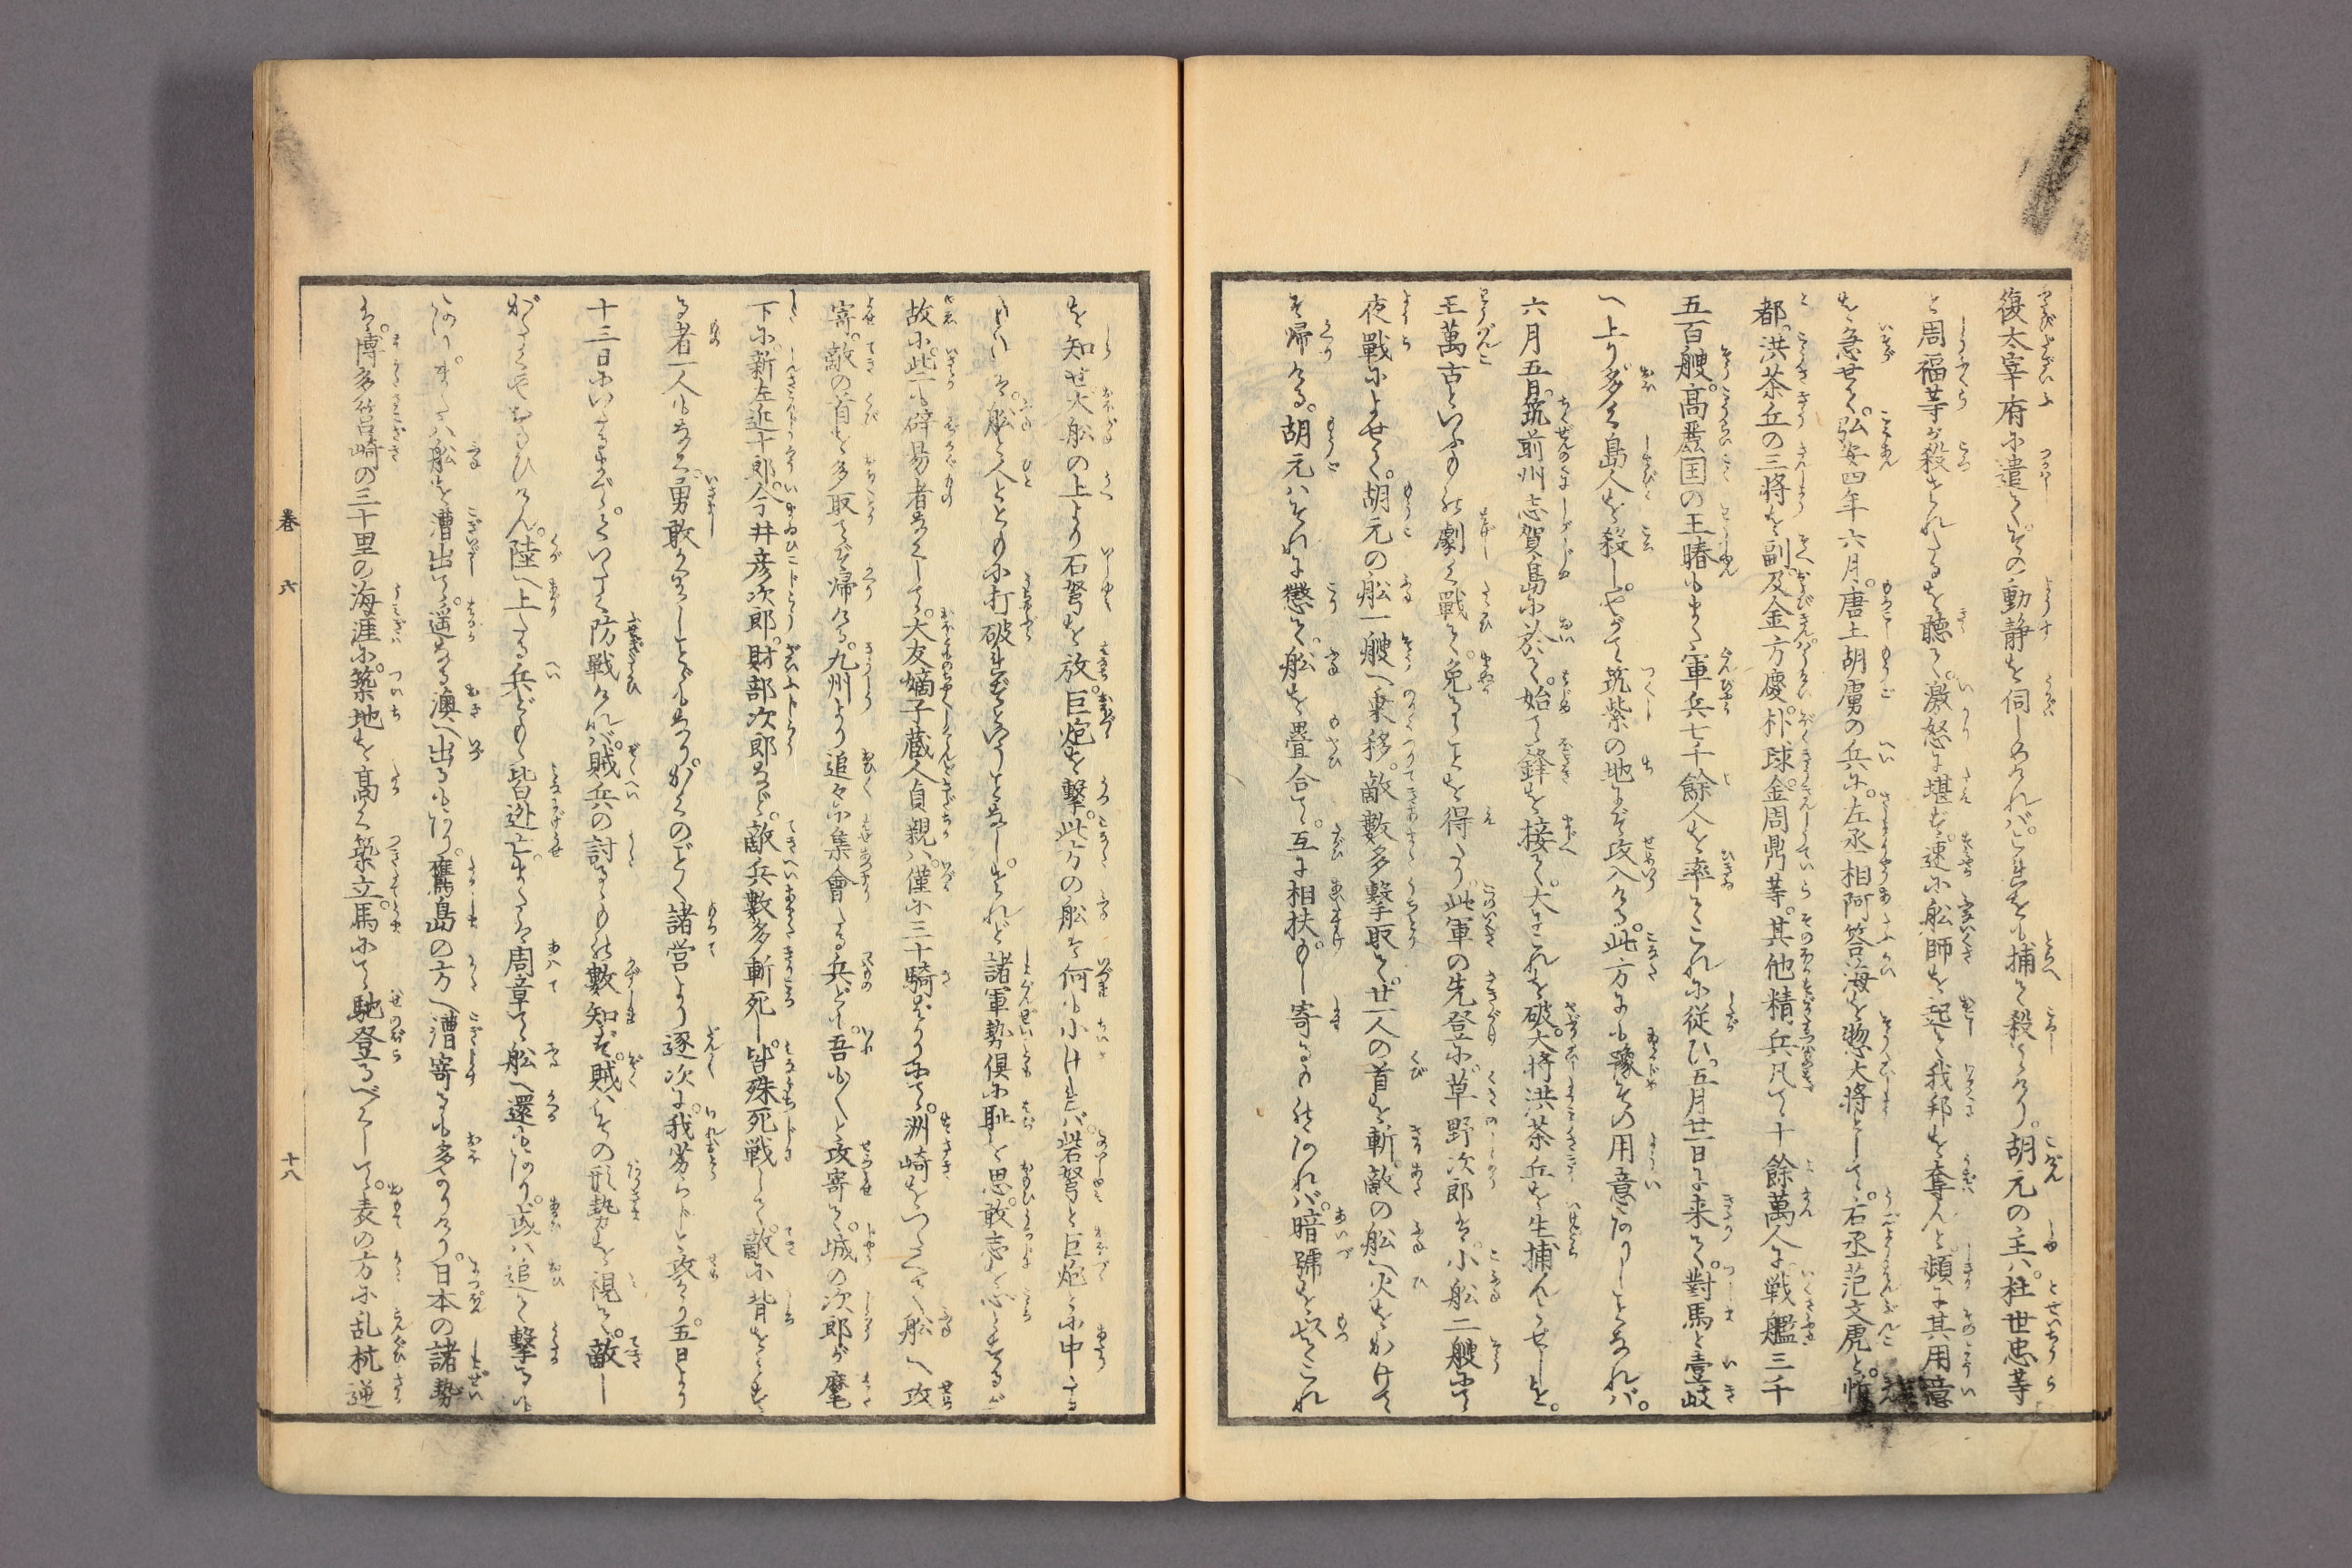 復太宰府に遣して。その動静を伺しめければ。これをも捕て殺しけり。胡元の主ハ。杜世忠等
と周福等が殺されたるを聴て。激怒に堪ず。速に舩師を起て我邦を奪んと。頻に其用意
を急せて。弘安四年六月。唐土胡虜の兵に。左丞相阿答海を惣大将として。右丞范文虎と。忻
都。洪茶丘の三将を副。及金方慶。朴球。金周鼎等。其他精兵凡て十餘萬人に戦艦三千
五百艘。高麗国の王𣇄もまた軍兵七千餘人を率てこれに従ひ。五月廿一日に来て。對馬と壹岐
へ上り多く島人を殺し。やがて筑紫の地にぞ攻入ける。此方にも豫その用意ありしことなれバ。
六月五日。筑前州志賀島に於て。始て鋒を接て。大にこれを破。大将洪茶丘を生捕んとせしを。
王萬古といふもの劇く戰て。免ることを得たり。此軍の先登に。草野次郎は。小舩二艘にて
夜戰によせて。胡元の舩一艘へ乗移。敵數多撃取て。廿一人の首を斬。敵の舩へ火をかけて
ぞ歸ける。胡元ハそれに懲て。舩を畳合て。互に相扶。もし寄るものあれバ。暗號を以てこれ
を知せ。大舩の上より石弩を放。巨炮を撃。此方の舩は何も小けれバ。岩弩と巨炮とに中る
ものは。舩と人とともに打破れざるといふことなし。されど諸軍勢倶に耻を思。敢志を志とするが
故に。些も辟易者なくして。大友嫡子蔵人貞親ハ。僅に三十騎ばかりにて。洲崎をつたへて舩へ攻
寄。敵の首を多取てぞ帰ける。九州より追々に集會たる兵ども。吾も〳〵と攻寄て。城の次郎が麾
下に。新左近十郎。今井彦次郎。財部次郎など。敵兵數多斬死し。皆殊死戦して。敵に背をミする
る者一人もなく。勇敢かりしことどもなり。かくのごとく諸営より逐次に。我劣らじと攻けり。五日より
十三日にいたるまで。かくいたく防戦けれバ。賊兵の討るゝもの數知ず。賊ハその形勢を視て。敵し
がたくや思ひけん。陸へ上たる兵ども。皆逃亡。または周章て舩へ還もあり。或ハ追て撃るゝも
あり。また八舩を漕出て。遥なる澳へ出るもあり。鷹島の方へ漕寄るも多かりけり。日本の諸勢
は。博多筥崎の三十里の海涯に。築地を高く築立。馬にて馳登るべくして。表の方に乱杭逆
巻六
十八